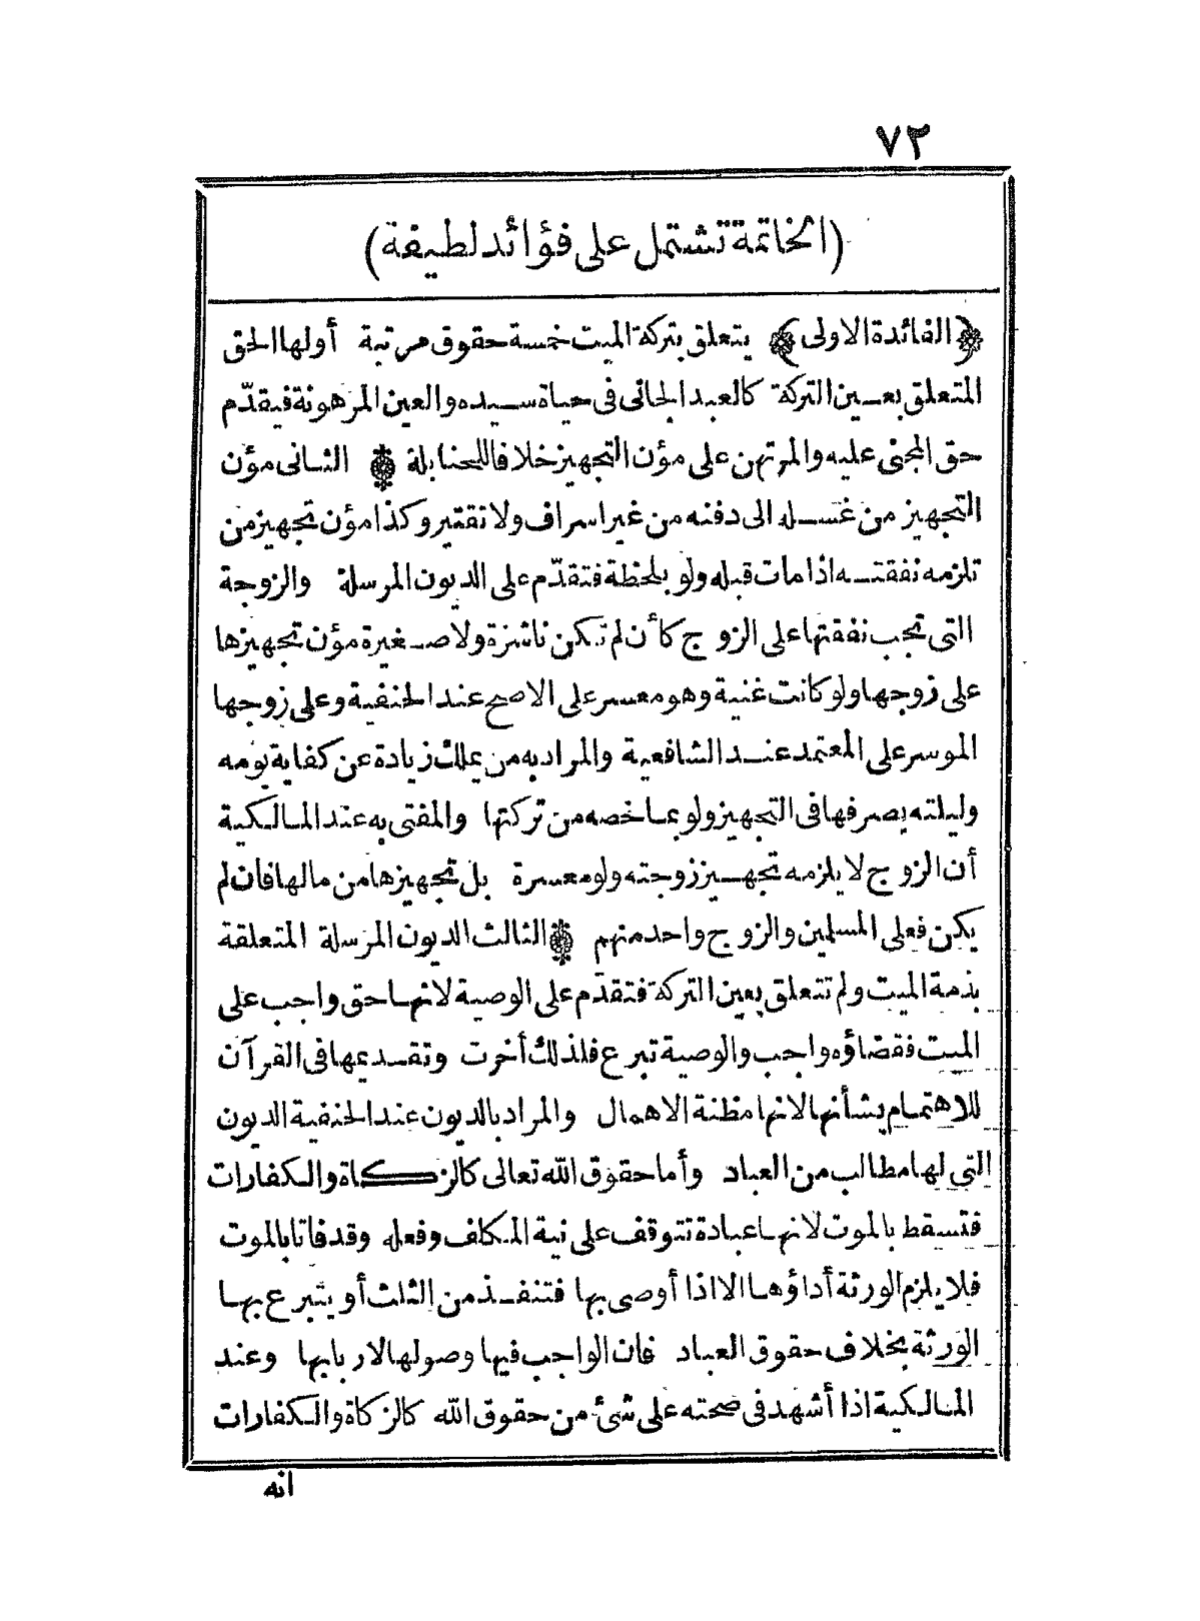 ٧٢
(الخاتمة تشتمل على فوائد لطيفة)
﴿الفائدة الاولى﴾ يتعلق بتركة الميت خمسة حقوق مرتبة أولها الحق
المتعلق بعين التركة كالعبد الجانى فى حياة سيده والعين المرهونة فيقدّم
حق المجنى عليه والمرتهن على مؤن التجهيز خلافا للحنابلة * الثانى مؤن
التجهيز من غسله الى دفنه من غير اسراف ولا تقتير وكذا مؤن تجهيز من
تلزمه نفقته اذا مات قبله ولو بلحظة فتقدّم على الديون المرسلة والزوجة
التى تجب نفقتها على الزوج كأن لم تكن ناشزة ولا صغيرة مؤن تجهيزها
على زوجها ولو كانت غنية وهو معسر على الاصح عند الحنفية وعلى زوجها
الموسر على المعتمد عند الشافعية والمراد به من يملك زيادة عن كفاية يومه
وليلته يصرفها فى التجهيز ولو بما خصه من تركتها والمفتى به عند المالكية
أن الزوج لا يلزمه تجهيز زوجته ولو معسرة بل تجهيزها من مالها فان لم
يكن فعلى المسلمين والزوج واحد منهم * الثالث الديون المرسلة المتعلقة
بذمة الميت ولم تتعلق بعين التركة فتقدّم على الوصية لانها حق واجب على
الميت فقضاؤه واجب والوصية تبرع فلذلك أخرت وتقديمها فى القرآن
للاهتمام بشأنها لانها مظنة الاهمال والمراد بالديون عند الحنفية الديون
التى لها مطالب من العباد وأما حقوق الله تعالى كالزكاة والكفارات
فتسقط بالموت لانها عبادة تتوقف على نية المكلف وفعله وقد فاتا بالموت
فلا يلزم الورثة أداؤها الا اذا أوصى بها فتنفذ من الثلث أو يتبرع بها
الورثة بخلاف حقوق العباد فان الواجب فيها وصولها لاربابها وعند
المالكية اذا أشهد فى صحته على شئ من حقوق الله كالزكاة والكفارات
انه